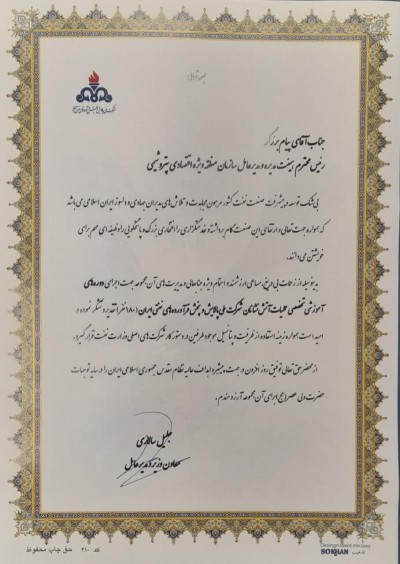 بسمه تعالی
جناب آقای پیام برزگر
رئیس محترم هیئت مدیره و مدیرعامل سازمان منطقه ویژه اقتصادی پتروشیمی
بی‌شک توسعه و پیشرفت صنعت نفت کشور مرهون مجاهدت و تلاش‌های مدیران جهادی و دلسوز ایران اسلامی می‌باشد
که همواره جهت تعالی و ارتقای این صنعت گام برداشته و خدمتگزاری را افتخاری بزرگ و پاسخگویی را وظیفه‌ای مهم برای
خویشتن می‌دانند.
بدینوسیله از زحمات بی‌دریغ، مساعی ارزشمند و اهتمام ویژه جنابعالی و مدیریت‌های آن مجموعه جهت اجرای دوره‌های
آموزشی تخصصی عملیات آتش نشانان شرکت ملی پالایش و پخش فرآورده‌های نفتی ایران (۱۸۰ نفر) تقدیر و تشکر نموده و
امید است همواره زمینه استفاده از ظرفیت و پتانسیل موجود طرفین در دستور کار شرکت‌های اصلی وزارت نفت قرار گیرد.
از محضر حق تعالی توفیق روز افزون در جهت پیشبرد اهداف عالیه نظام مقدس جمهوری اسلامی ایران را در سایه توجهات
حضرت ولی عصر (عج) برای آن مجموعه آرزومندم.
جلیل سالاری
معاون وزیر و مدیرعامل
کد ۲۱۰ حق چاپ محفوظ
SOKHAN